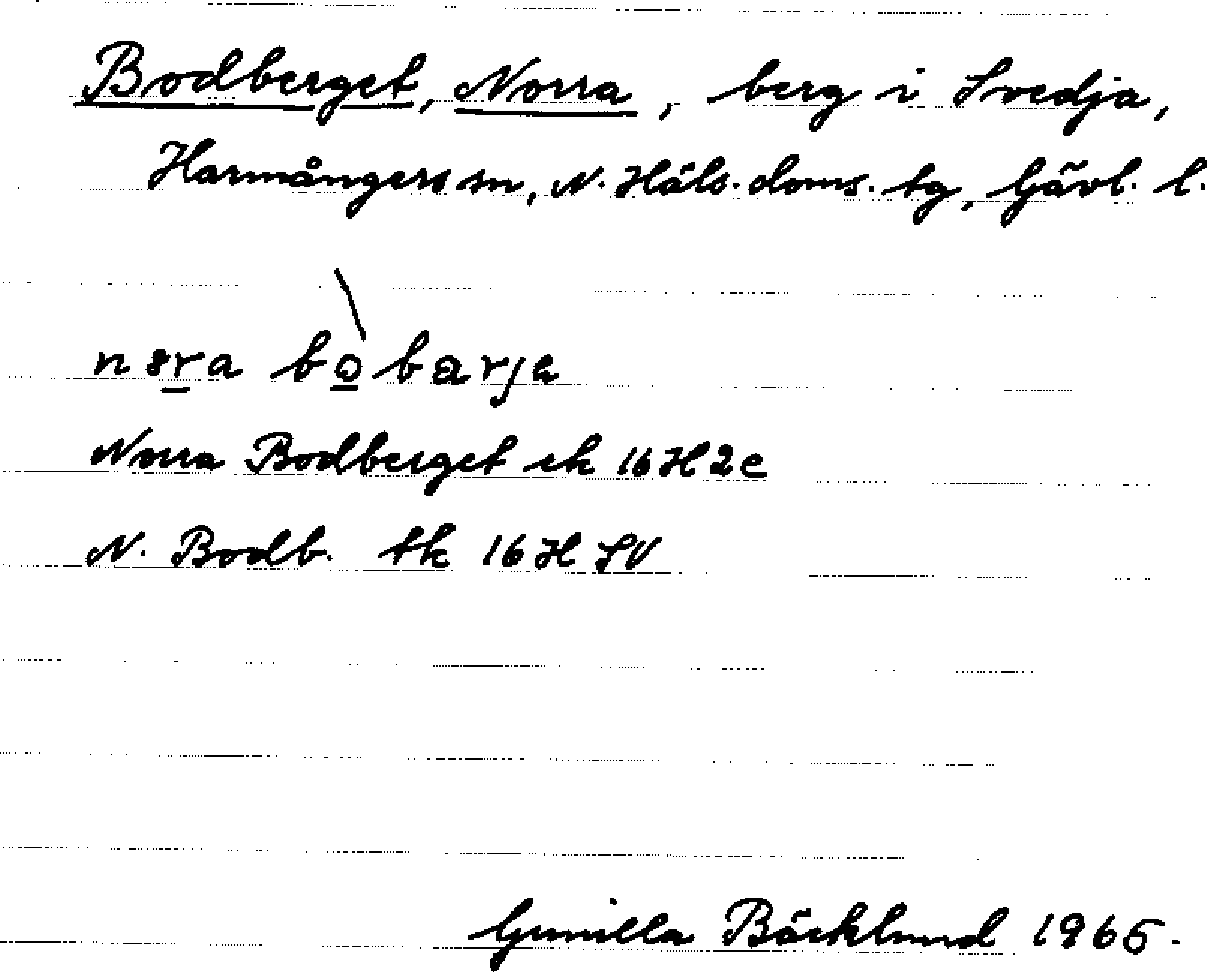 Bodberget, Norra, berg i Svedja,
Harmångers sn, N. Häls. doms. tg, Gävl. l.
Norra Bodberget ek 16H2c
N. Bodb. tk 16H SV
Gunilla Bäcklund 1965.